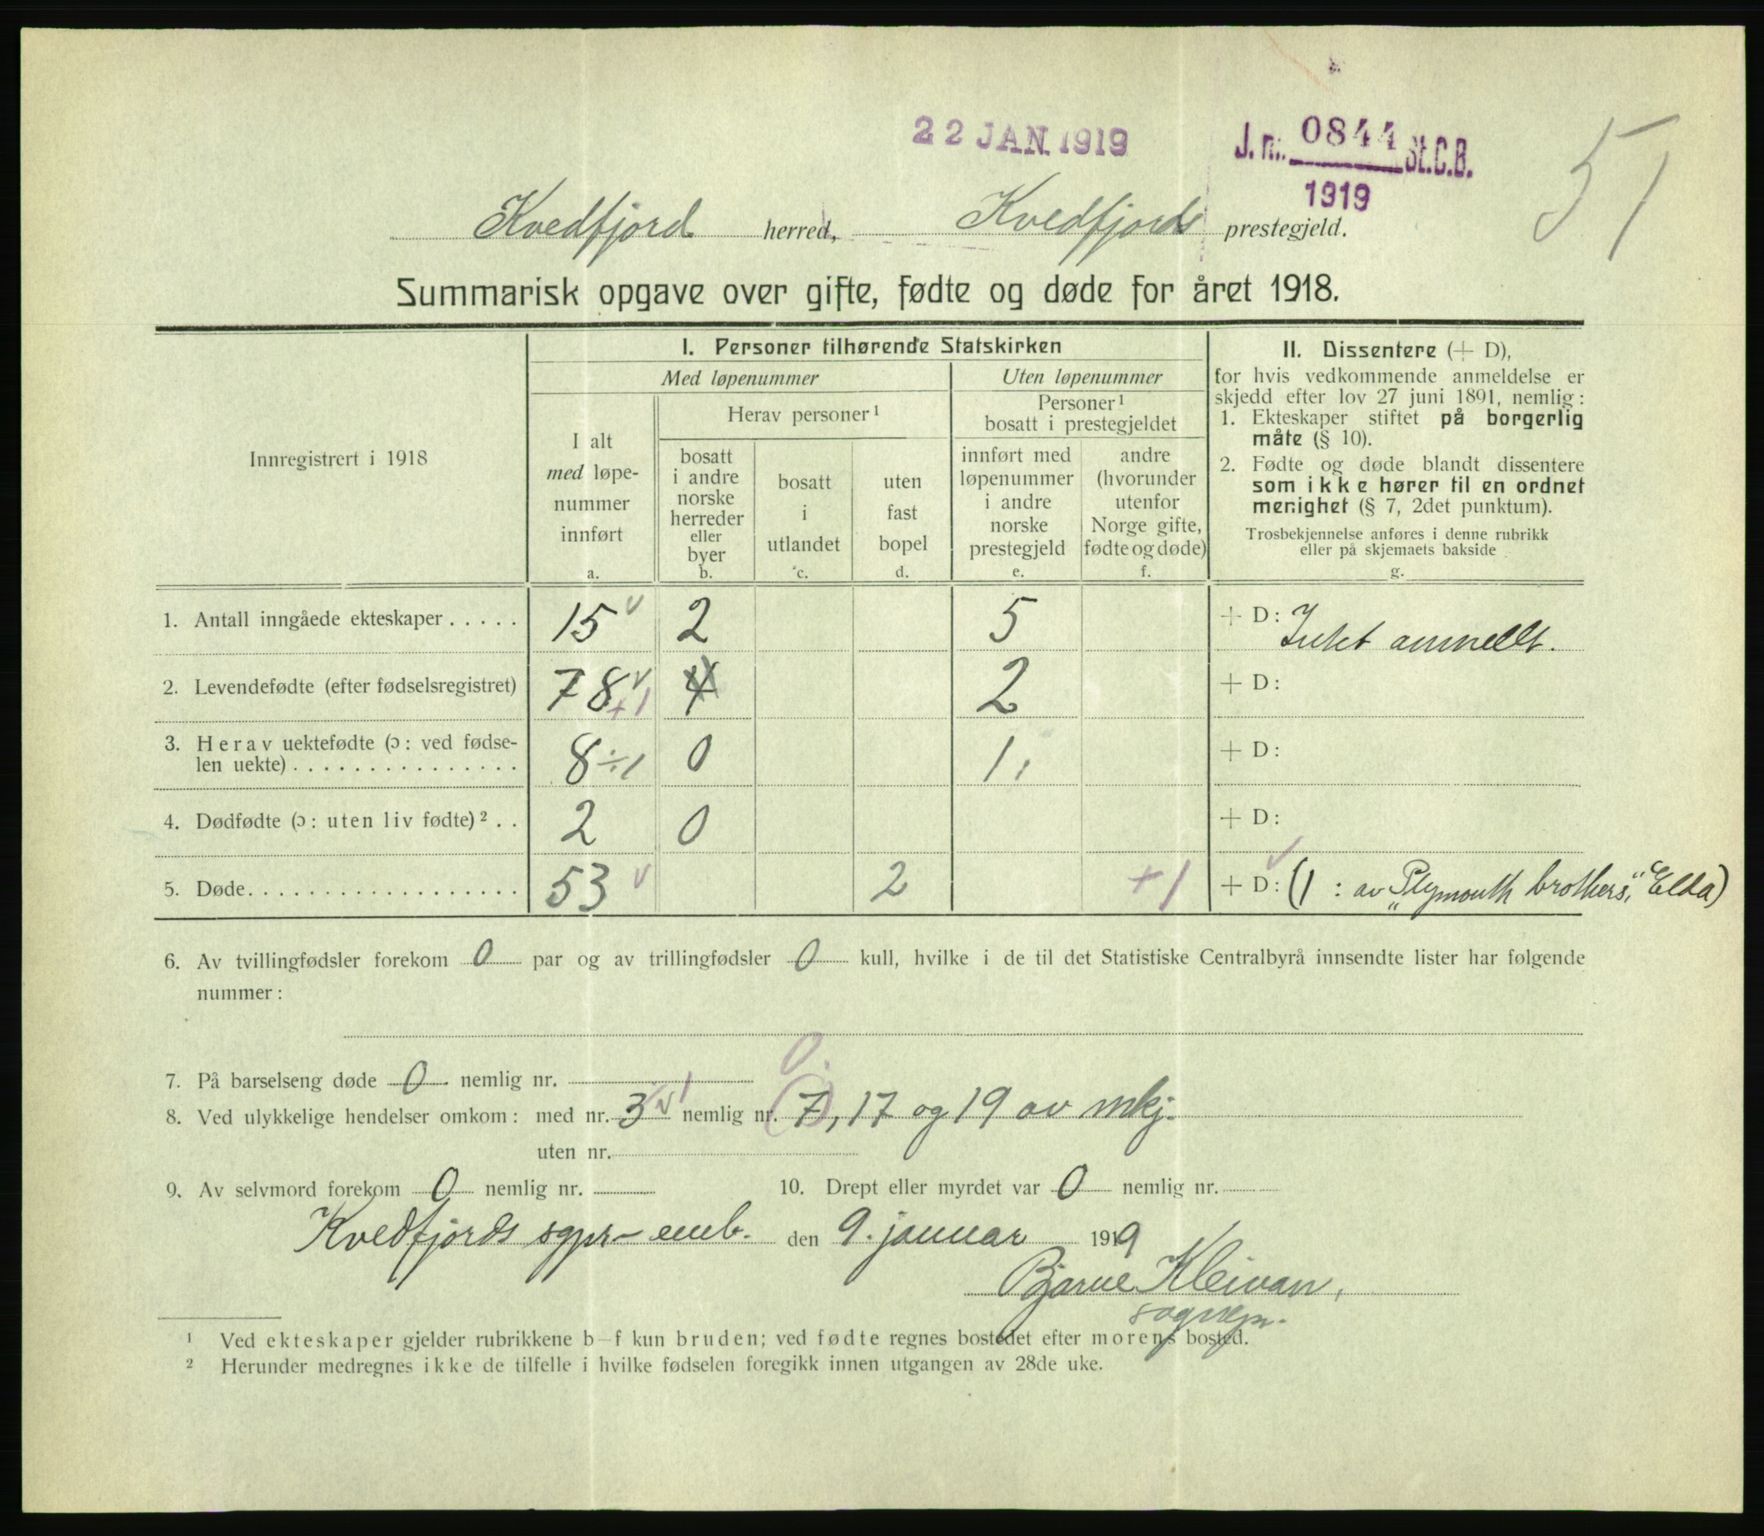 22 JAN. 1919
J. nr. 0844 St.C.B.
1919
51
Kvedfjord herred, Kvedfjords prestegjeld.
Summarisk opgave over gifte, fødte og døde for året 1918.
Innregistrert i 1918
I. Personer tilhørende Statskirken
Med løpenummer
Uten løpenummer
I alt
med løpe-
nummer
innført
a.
Herav personer¹
bosatt
i andre
norske
herreder
eller
byer
b.
bosatt
i
utlandet
c.
uten
fast
bopel
d.
Personer¹
bosatt i prestegjeldet
innført med
løpenummer
i andre
norske
prestegjeld
e.
andre
(hvorunder
utenfor
Norge gifte,
fødte og døde)
f.
II. Dissentere (+ D),
for hvis vedkommende anmeldelse er
skjedd efter lov 27 juni 1891, nemlig:
1. Ekteskaper stiftet på borgerlig
måte (§ 10).
2. Fødte og døde blandt dissentere
som ikke hører til en ordnet
menighet (§ 7, 2det punktum).
Trosbekjennelse anføres i denne rubrikk
eller på skjemaets bakside
g.
1. Antall inngåede ekteskaper . . . . . 15 v 2 5 + D: Intet anmeldt.
2. Levendefødte (efter fødselsregistret) 78 v +1 4 2 + D:
3. Herav uektefødte (ɔ: ved fødse-
len uekte) . . . . . . . . . . . . . . . 8 ÷1 0 1, + D:
4. Dødfødte (ɔ: uten liv fødte)² . . 2 0 + D:
5. Døde. . . . . . . . . . . . . . . . . . 53 v 2 +1 + D: v (1 : av „Plymouth brothers“, Elda)
6. Av tvillingfødsler forekom 0 par og av trillingfødsler 0 kull, hvilke i de til det Statistiske Centralbyrå innsendte lister har følgende
nummer:
0.
7. På barselseng døde 0 nemlig nr.
8. Ved ulykkelige hendelser omkom: med nr. 3 v 1 nemlig nr. (7), 17 og 19 av mkj.
uten nr.
9. Av selvmord forekom 0 nemlig nr. 10. Drept eller myrdet var 0 nemlig nr.
Kvedfjords sgpr-emb. den 9. januar 1919
Bjarne Kleivan,
sognepr.
¹ Ved ekteskaper gjelder rubrikkene b–f kun bruden; ved fødte regnes bostedet efter morens bosted.
² Herunder medregnes ikke de tilfelle i hvilke fødselen foregikk innen utgangen av 28de uke.